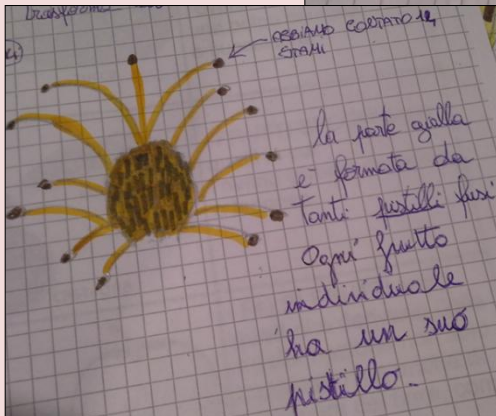 trasforma
4)
ABBIAMO CONTATO 12
STAMI
la parte gialla
è formata da
tanti pistilli fusi
Ogni frutto
individuale
ha un suo
pistillo.